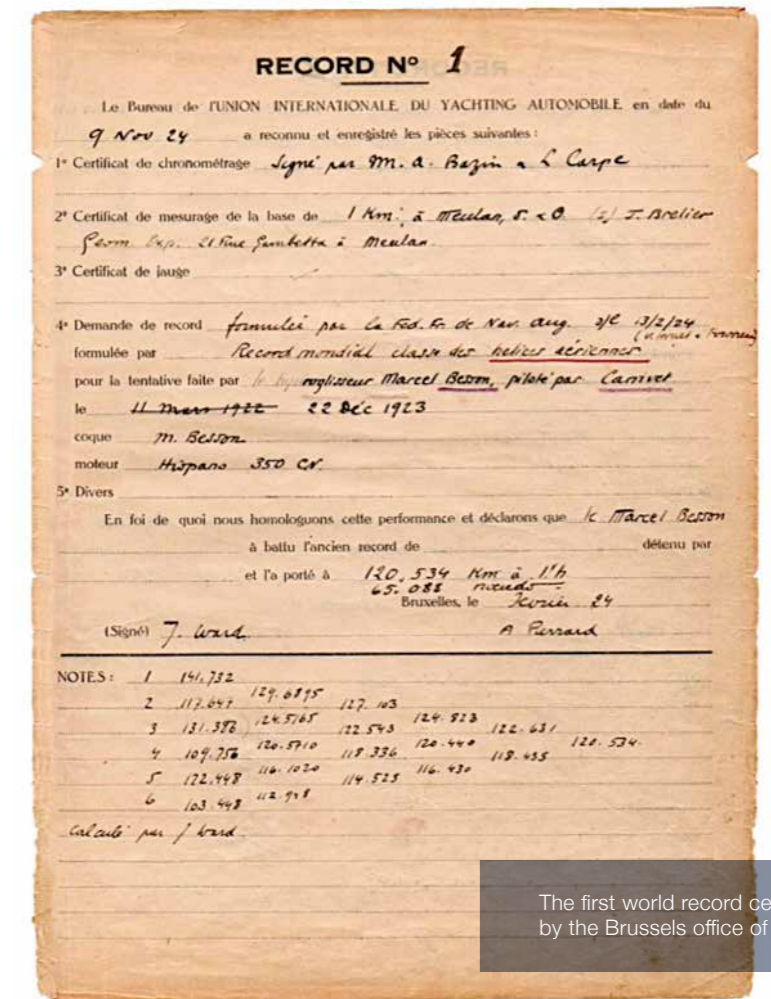 RECORD Nº 1
Le Bureau de l'UNION INTERNATIONALE DU YACHTING AUTOMOBILE en date du
9 Nov 24 a reconnu et enregistré les pièces suivantes :
1º Certificat de chronométrage Signé par M. A. Bazin & L Carpe
2º Certificat de mesurage de la base de 1 Km. à Meulan, S. & O. (s) J. Brelier
Geom Exp. 21 rue Gambetta à Meulan
3º Certificat de jauge
4º Demande de record formulée par la Fed. Fr. de Nav. Aug. 3/2/24
formulée par Record mondial classe des helices aériennes
pour la tentative faite par Marcel Besson, piloté par Canivet
le 11 Mars 1922 22 Déc 1923
coque M. Besson
moteur Hispano 350 CV.
5º Divers
En foi de quoi nous homologuons cette performance et déclarons que le Marcel Besson
à battu l'ancien record de détenu par
et l'a porté à 120,534 Km à l'h
65.088 nœuds
Bruxelles, le Février 24
(Signé) J. Ward A Pierrard
NOTES : 1 141,732
129.6895
2 117.647 127.103
124.5165 124.823
3 131.386 122.543 122.631
120.5710 120.440 120.534
4 109.756 118.336 118.435
116.1020 116.430
5 122.448 114.525
112.948
6 103.448
Calculé par J Ward
The first world record ce
by the Brussels office of